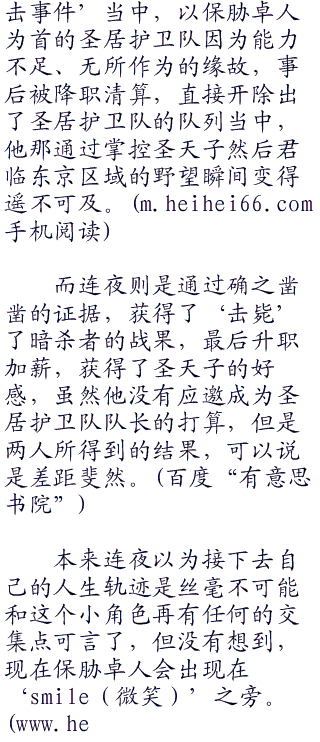 击事件’当中，以保胁卓人
为首的圣居护卫队因为能力
不足、无所作为的缘故，事
后被降职清算，直接开除出
了圣居护卫队的队列当中，
他那通过掌控圣天子然后君
临东京区域的野望瞬间变得
遥不可及。(m.heihei66.com
手机阅读)
而连夜则是通过确之凿
凿的证据，获得了‘击毙’
了暗杀者的战果，最后升职
加薪，获得了圣天子的好
感，虽然他没有应邀成为圣
居护卫队队长的打算，但是
两人所得到的结果，可以说
是差距斐然。(百度“有意思
书院”)
本来连夜以为接下去自
己的人生轨迹是丝毫不可能
和这个小角色再有任何的交
集点可言了，但没有想到，
现在保胁卓人会出现在
‘smile（微笑）’之旁。
(www.he